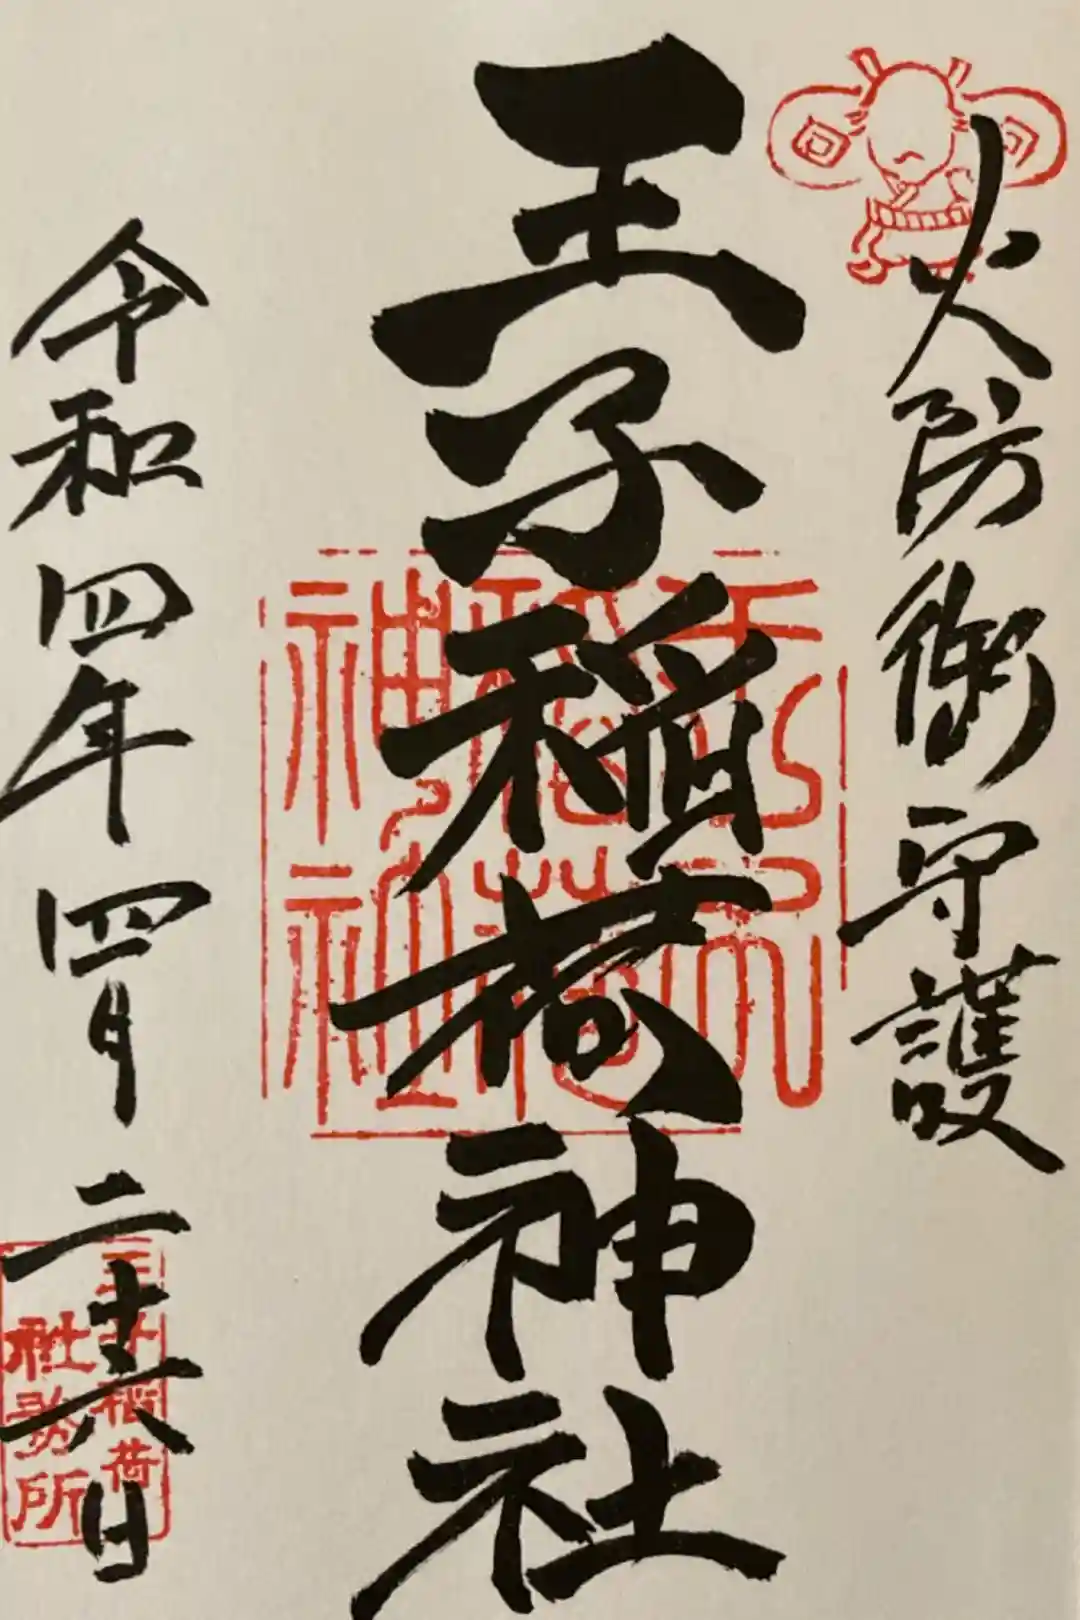 火防御守護
王子稲荷神社
令和四年四月二十六日
王子稲荷神社
王子稲荷
社務所